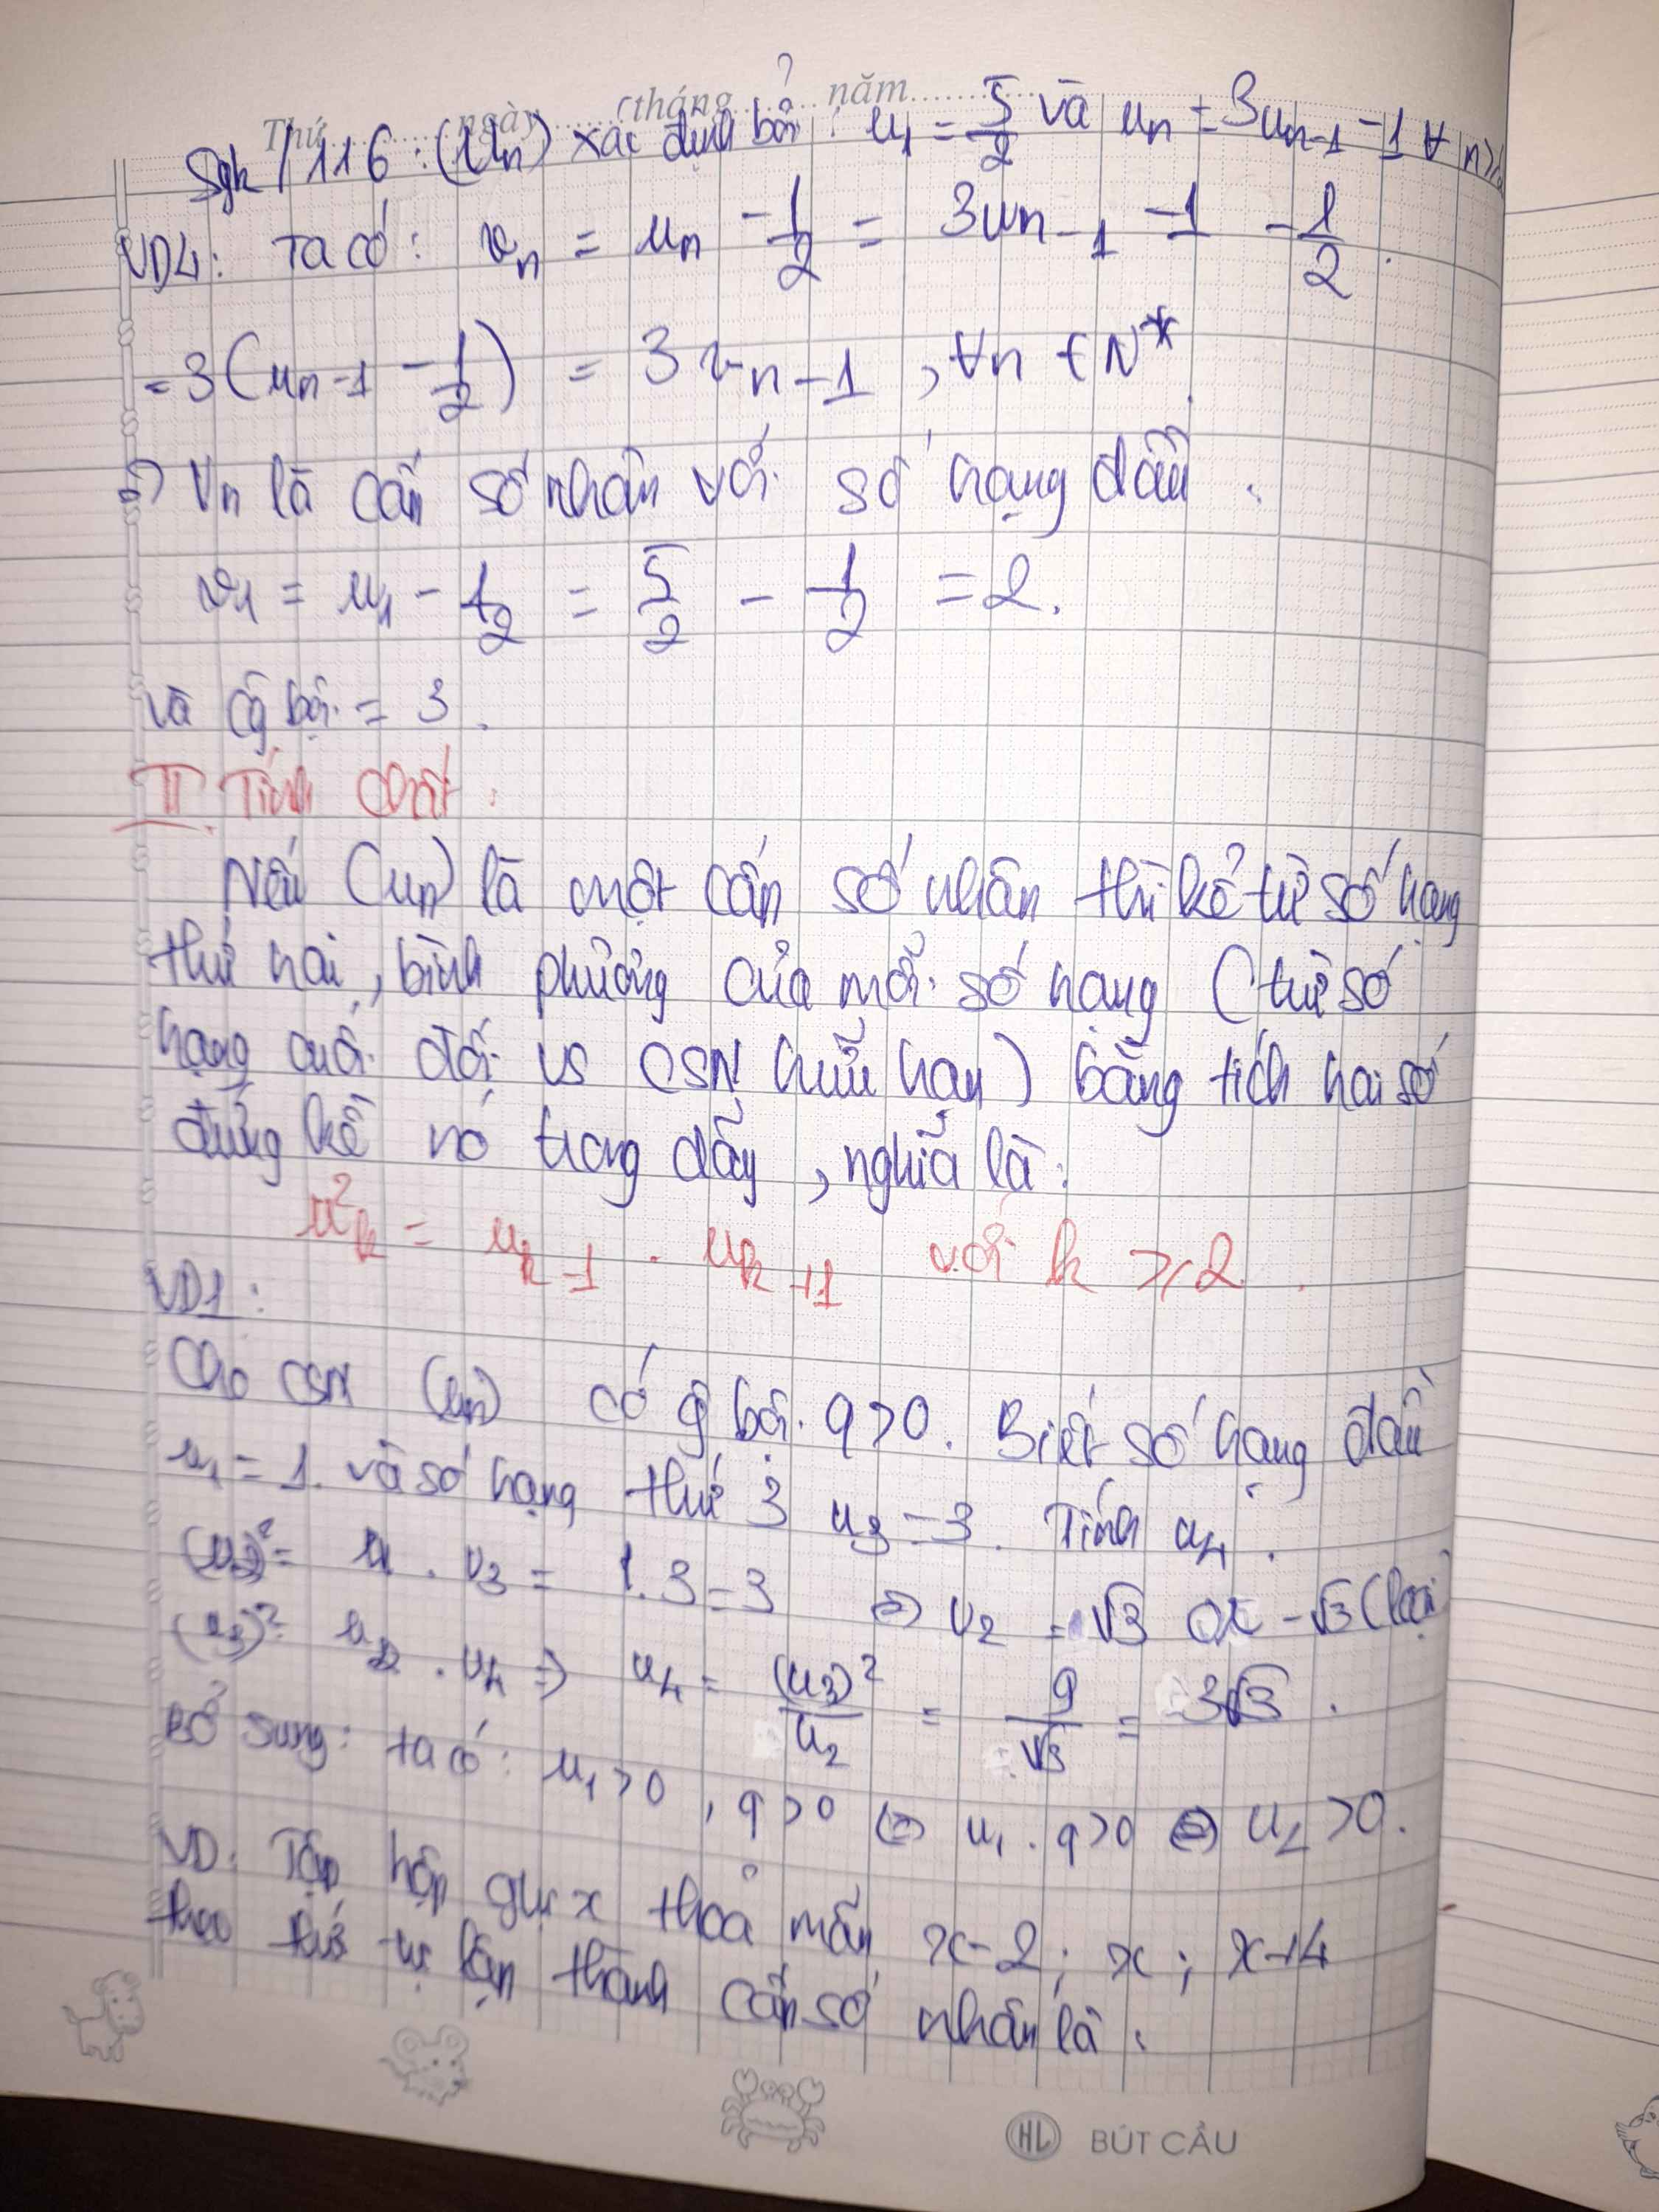 Thứ.......ngày.......tháng.......năm..........
Sgk/116 : (Un) xác định bởi : u₁ = 5/2 và un = 3un-1 -1 ∀ n≥2
VD4: Ta có: vn = un - 1/2 = 3un-1 -1 - 1/2.
= 3(un-1 - 1/2) = 3vn-1 , ∀n ∈ N*.
=> Vn là cấp số nhân với số hạng đầu :
v1 = u1 - 1/2 = 5/2 - 1/2 = 2.
và công bội = 3.
II. Tính chất :
Nếu (un) là một cấp số nhân thì kể từ số hạng
thứ hai, bình phương của mỗi số hạng (trừ số
hạng cuối đối vs CSN hữu hạn) bằng tích hai số
đứng kề nó trong dãy, nghĩa là:
u²k = uk-1 . uk+1 với k ≥ 2.
VD1:
Cho CSN (un) có bội q>0. Biết số hạng đầu
u1 = 1. và số hạng thứ 3 u3 = 3. Tính u4.
(u2)² = u1 . u3 = 1.3 = 3 => u2 = √3 - √3 (loại)
(u3)² = u2 . u4 => u4 = (u3)²/u2 = 9/√3 = 3√3.
Bổ sung: ta có: u1>0, q>0 <=> u1.q>0 <=> u2>0.
VD: Tập hợp x thỏa mãn x-2; x; x+4
theo thứ tự lập thành cấp số nhân là:
HL BÚT CẦU